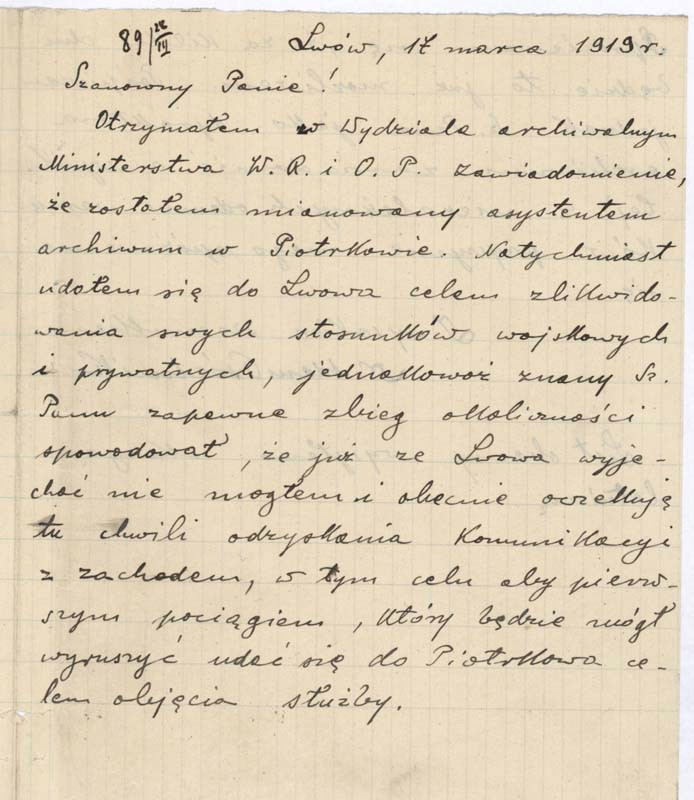 89/28/III Lwów, 17 marca 1919 r.
Szanowny Panie!
Otrzymałem z Wydziału archiwalnym
Ministerstwa W. R. i O. P. zawiadomienie,
że zostałem mianowany asystentem
archiwum w Piotrkowie. Natychmiast
udałem się do Lwowa celem zlikwido-
wania swych stosunków wojskowych
i prywatnych, jednakowoż znany Sz.
Panu zapewne zbieg okoliczności
spowodował, że już ze Lwowa wyje-
chać nie mogłem i obecnie oczekuję
tu chwili odzyskania komunikacyi
z zachodem, w tym celu aby pierw-
szym pociągiem, który będzie mógł
wyruszyć udać się do Piotrkowa ce-
lem objęcia służby.